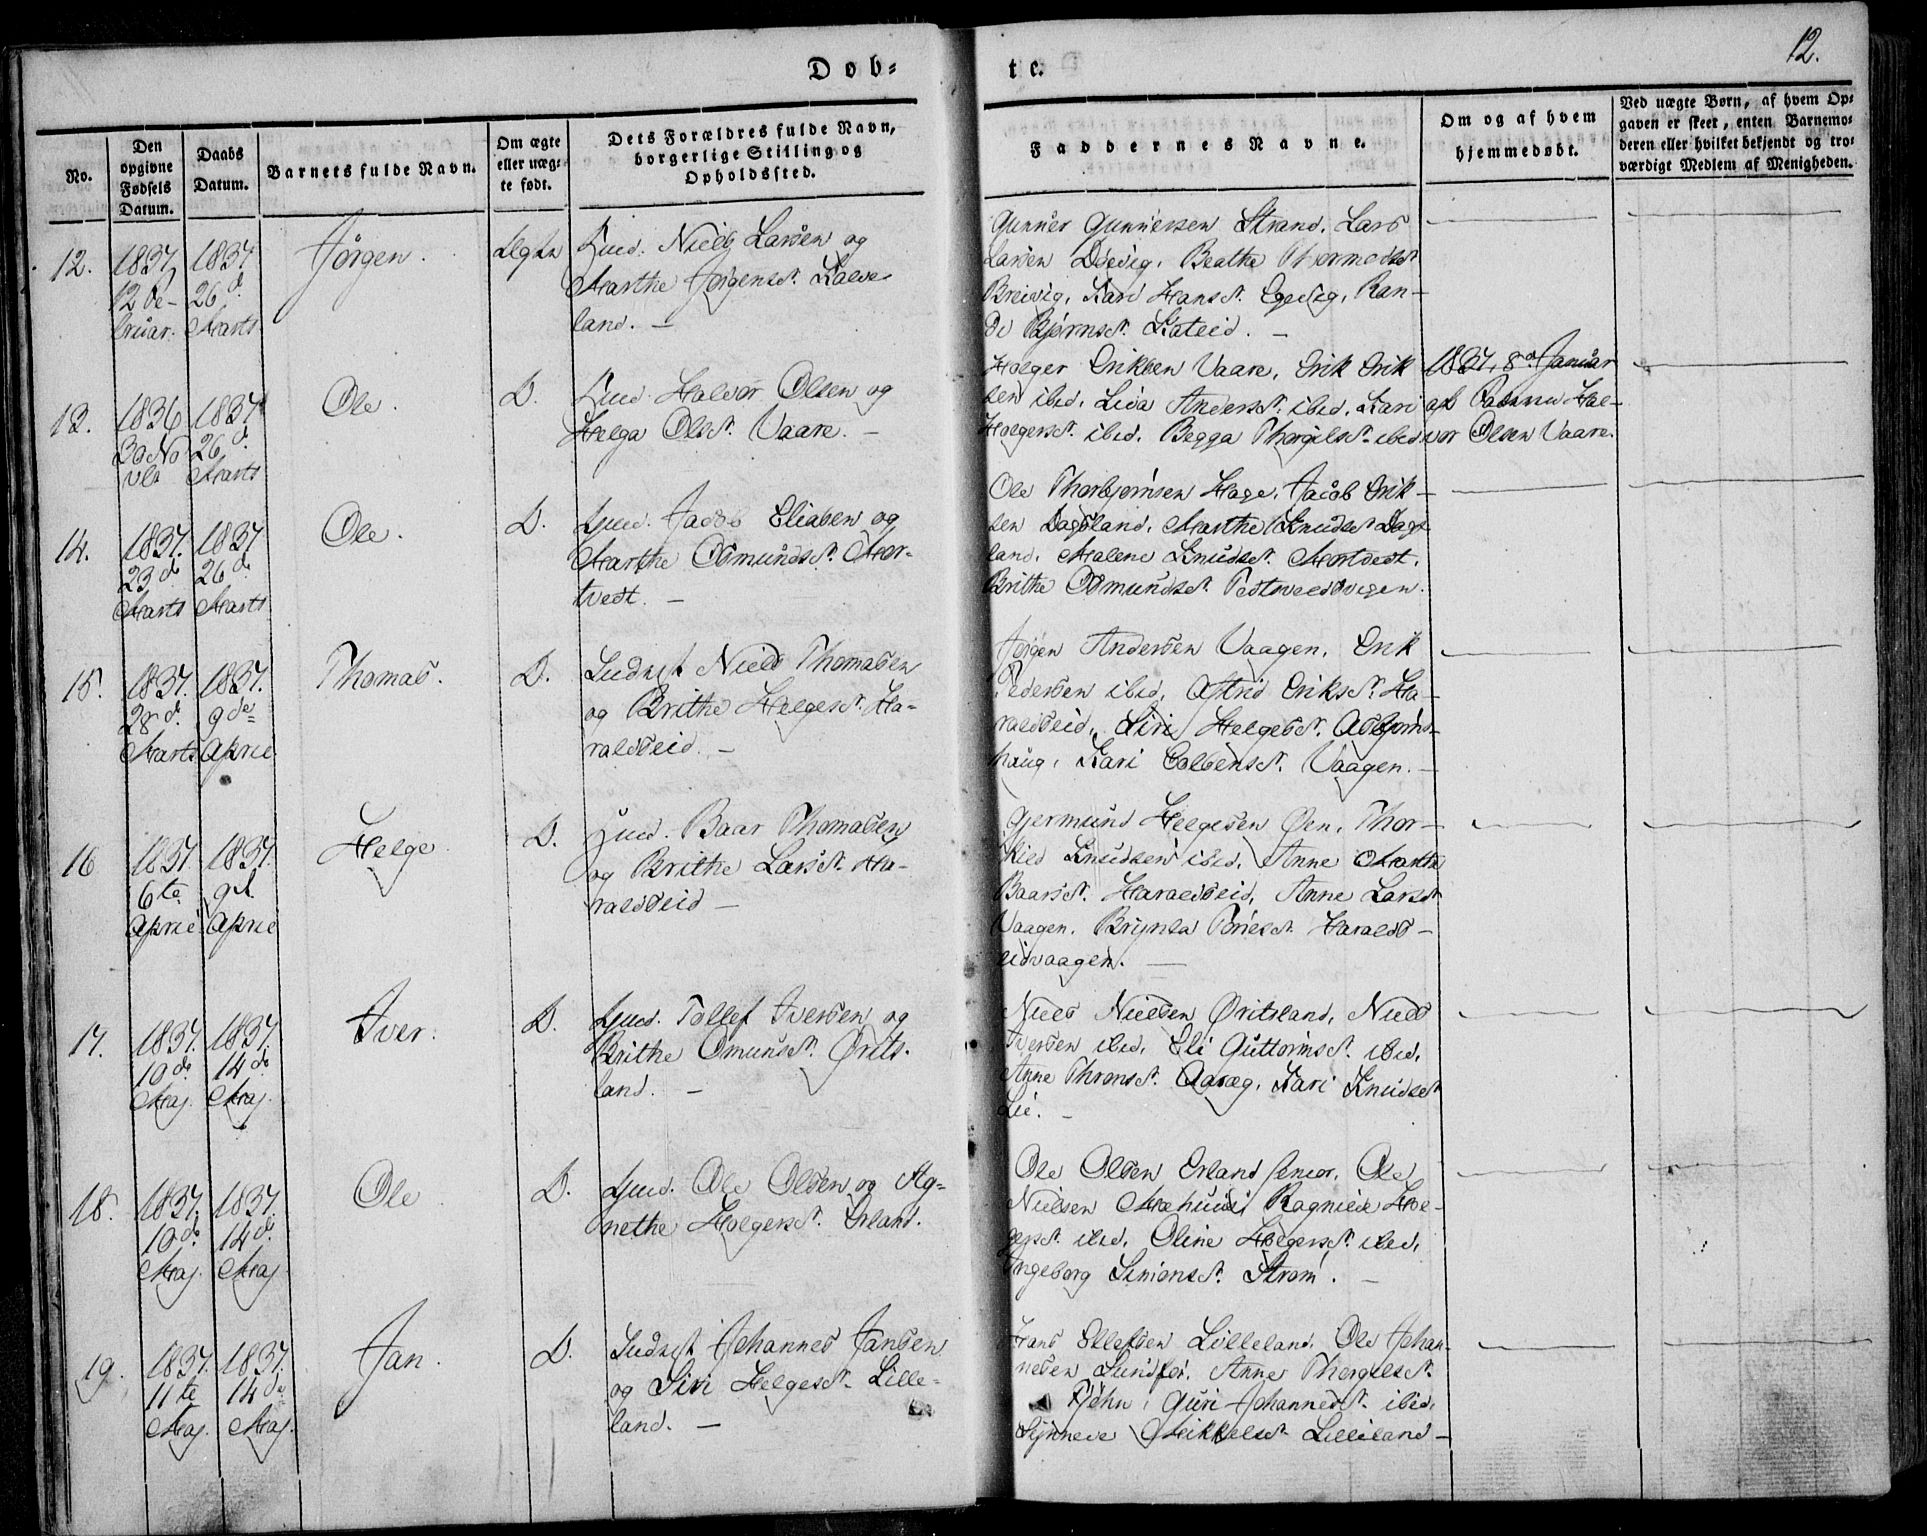 Døb=
te.
12.
No.
Den
opgivne
Fødsels
Datum.
Daabs
Datum.
Barnets fulde Navn.
Om ægte
eller uæg=
te født.
Dets Forældres fulde Navn,
borgerlige Stilling og
Opholdssted.
Faddernes Navne.
Om og af hvem
hjemmedøbt.
Ved uægte Børn, af hvem Op=
gaven er skeet, enten Barnemo=
deren eller hvilket bekjendt og tro=
værdigt Medlem af Menigheden.
12.
1837
12 Fe-
bruar.
1837
26 d.
Marts
Jørgen.
Ægte
Niels Larsen og
Marthe Jørgensd.
land. -
Gunner Gunnersen Strand. Lars
Larsen Beathe Thormodsd.
Breivig, Kari Hansd. Egevig, Ran-
di Bjørnsd. -
13.
1836
30 No
vbr
1837
26 d.
Marts
Ole.
D.
Halvor Olsen og
Helga Olsd. Vaare. -
Holger Eriksen Vaare, Erik Erik
sen ibid. Lisa Andersd. ibid. Kari
Holgersd. ibid. Begga Thorgilsd. ibid
1837, 8d Januar
af Faderen Hal-
vor Olsen Vaare.
14.
1837.
23 d.
Marts
1837
26 d.
Marts
Ole.
D.
Gmd. Jacob Eliasen og
Marthe Osmundsd. Mor-
tvedt. -
Ole Thorbjørnsen Hage, Jacob Erik-
sen Dagsland, Marthe Knudsd. Dags
land. Malene Knudsd. Mortvedt.
Brithe Osmundsd.
15.
1837.
28 d.
Marts
1837.
9 de
April
Thomas.
D.
Niels Thomasen
og Brithe Helgesd. Ha-
raldseid. -
Jørgen Andersen Vaagen, Erik
Pedersen ibid, Astrid Eriksd. Ha-
raldseid, Siri Helgesd. Asbjørns-
haug, Kari Colbensd. Vaagen. -
16
1837.
6te
April
1837.
9d.
April
Helge.
D.
Gmd. Baar Thomasen
og Brithe Larsd. Ha-
raldseid -
Gjermund Helgesen Øen, Thor-
kild Knudsen ibid. Anne Marthe
Baarsd. Haraldseid, Anne Larsd.
Vaagen. Brynla Haralds-
eidvaagen. -
17.
1837.
10 d.
Maj.
1837.
14 d.
Maj.
Iver.
D.
Gmd. Tollef Iversen og
Brithe Omundsd. Ørits-
land. -
Niels Nielsen Øritsland, Niels
Iversen ibid. Eli Guttormsd. ibid.
Anne Thronsd. Aaræg, Kari Knudsd.
Lie. -
18.
1837.
10 d.
Maj.
1837.
14 d.
Maj
Ole
D.
Gmd. Ole Olsen og Ag-
nethe Holgersd. Erland.
Ole Olsen Erland senior, Ole
Nielsen Ragnild Hol-
gersd. ibid. Oline Holgersd. ibid,
Ingeborg Simonsd. Strøm. -
19.
1837.
11te
Maj.
1837.
14 de
Maj.
Jan.
D.
Johannes Jansen
og Siri Helgesd. Lille-
land. -
Hans Ellefsen Lilleland. Ole Johan-
nesen Sundfør, Anne Thorgilsd.
Guri Johannesd. ibid,
Synneve Mikkelsd. Lilleland -